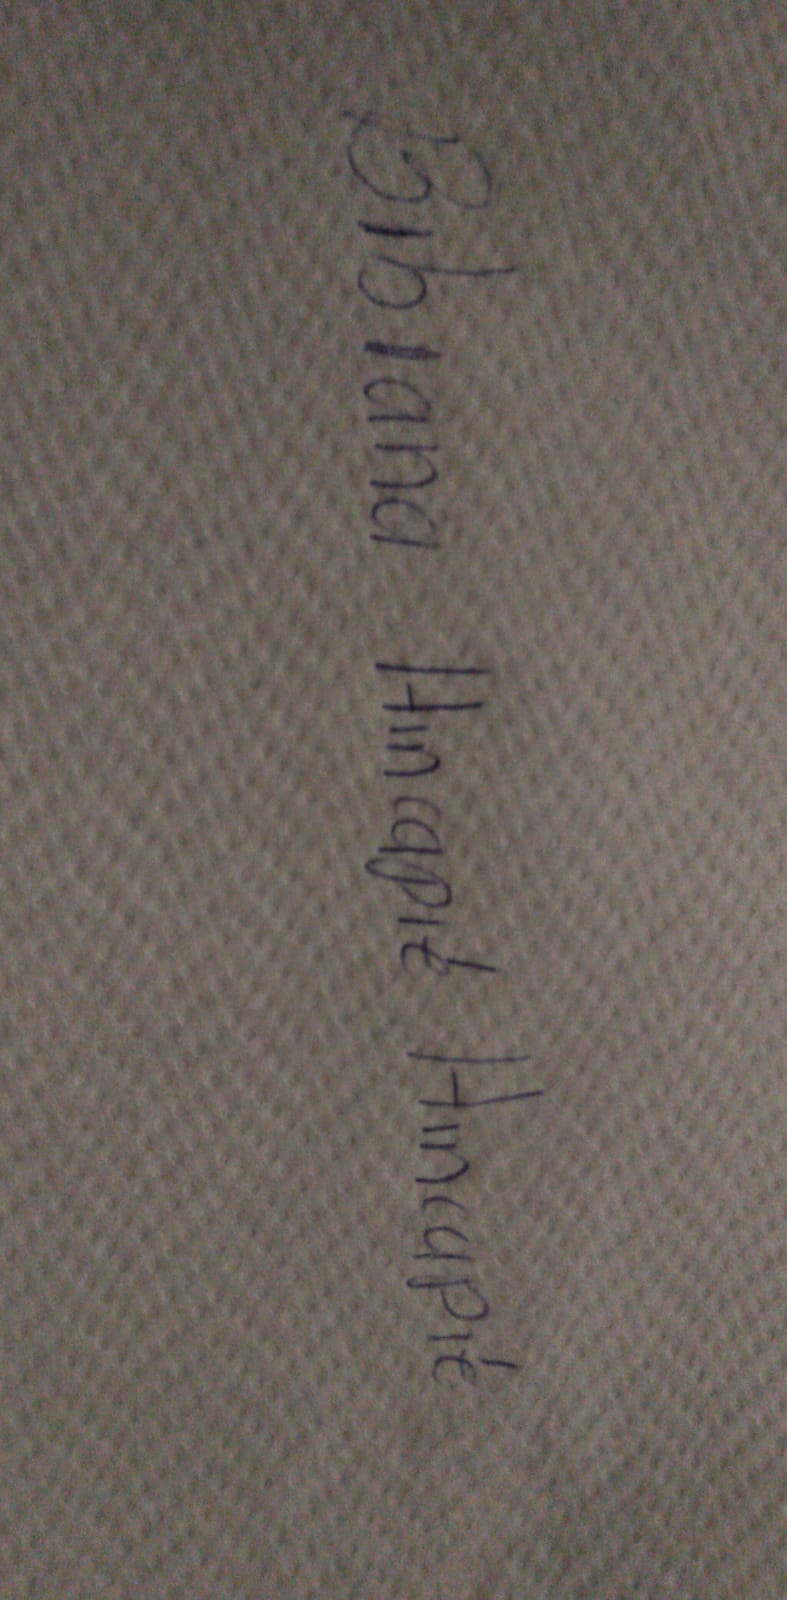 Bibiana Hincapié Hincapié